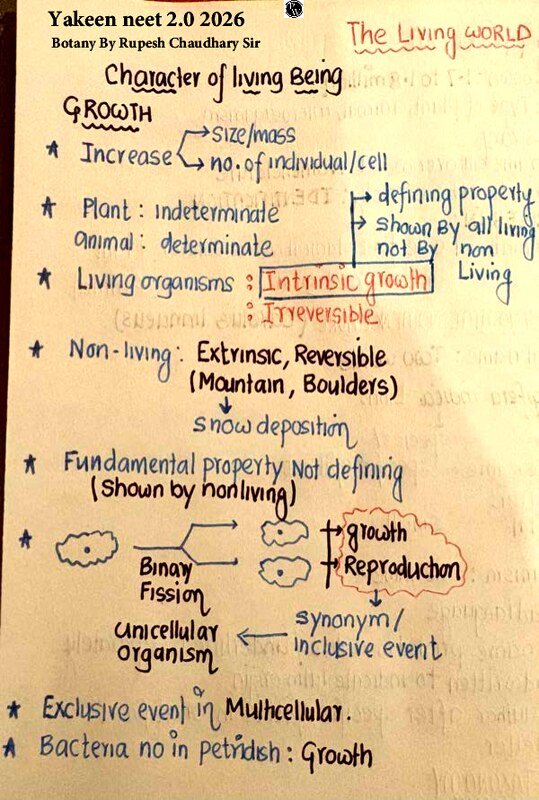 Yakeen neet 2.0 2026
Botany By Rupesh Chaudhary Sir
The Living WORLD
Character of living Being
GROWTH
★ Increase → size/mass
→ no. of individual/cell
★ Plant : indeterminate
animal : determinate
→ defining property
→ shown By all living
not By non
Living
★ Living organisms : Intrinsic growth
: Irreversible
★ Non-living : Extrinsic, Reversible
(Mountain, Boulders)
↓
snow deposition
★ Fundamental property Not defining
(shown by nonliving)
★ Binary
Fission
→ growth
→ Reproduction
↓
synonym/
inclusive event
← unicellular
organism
★ Exclusive event in Multicellular.
★ Bacteria no in petridish : Growth